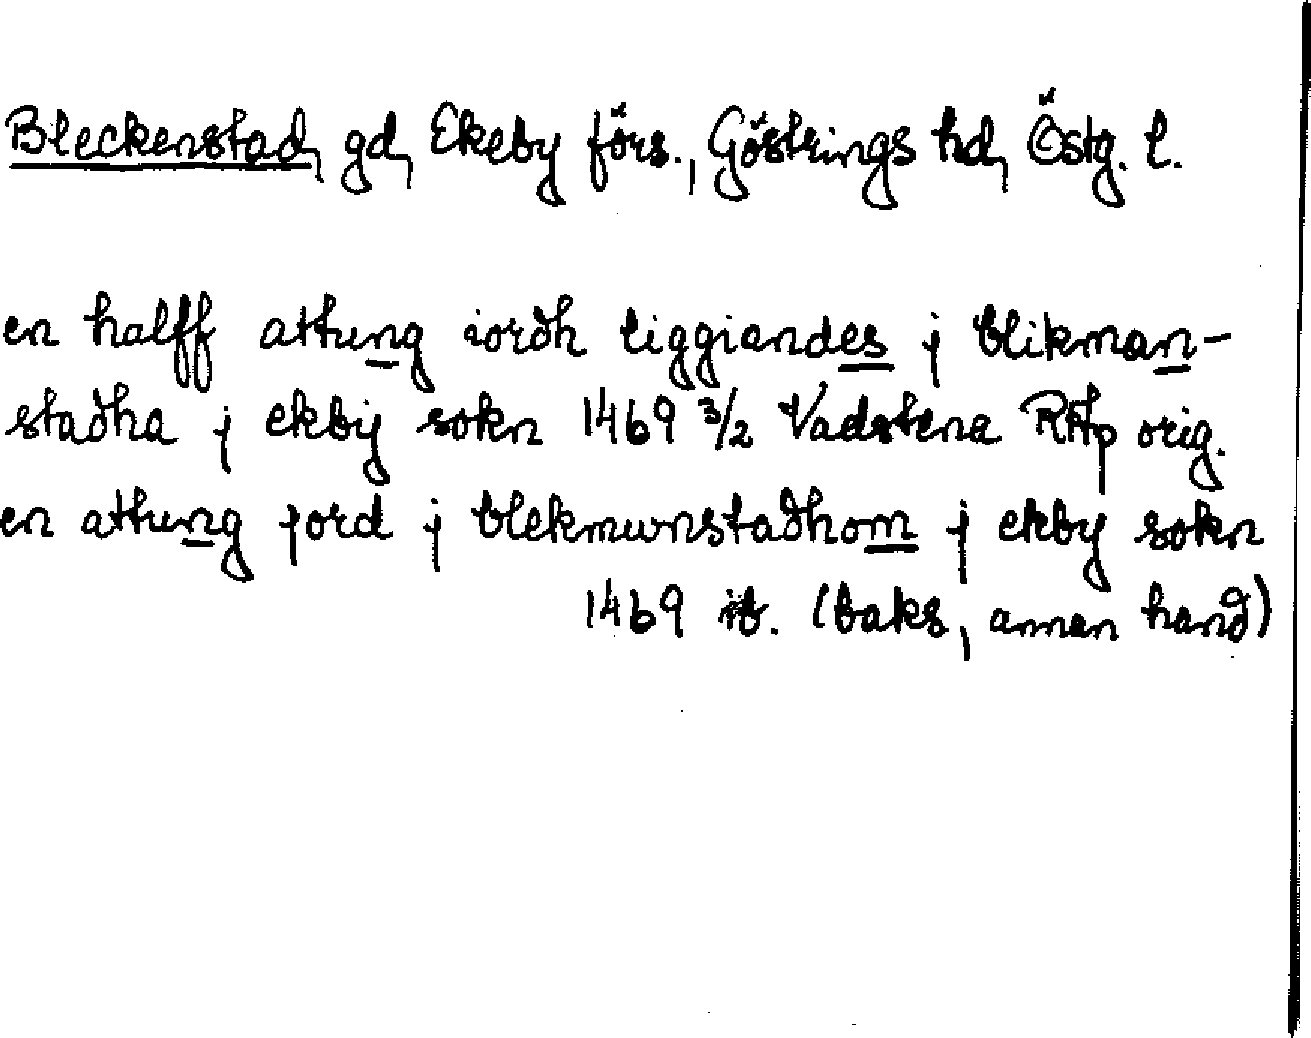 Bleckenstad, gd, Ekeby förs., Göstrings hd, Östg. l.
en halff attung iordh liggiandes j blikman-
stadha j ekby sokn 1469 3/2 Vadstena RAp orig.
en attung jord j blekmunstadhom j ekby sokn
1469 ib. (baks, annan hand)